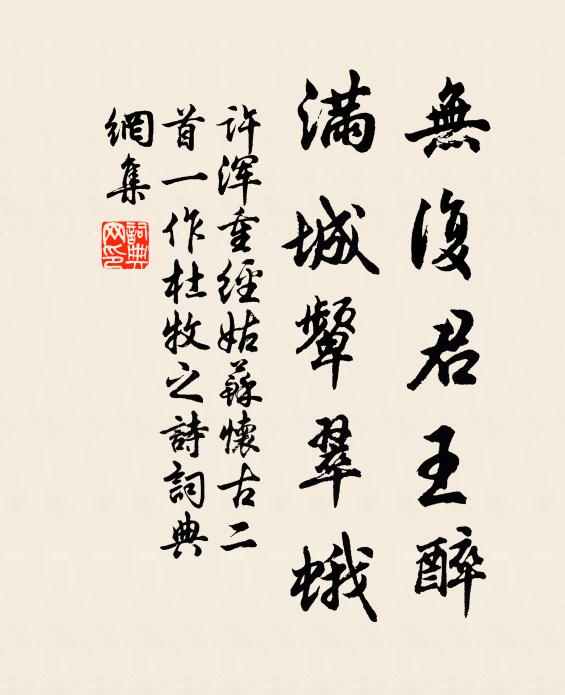 無復君王醉
滿城顰翠蛾
许渾重經姑蘇懷古二
首一作杜牧之詩詞典
網集
詞典
网印